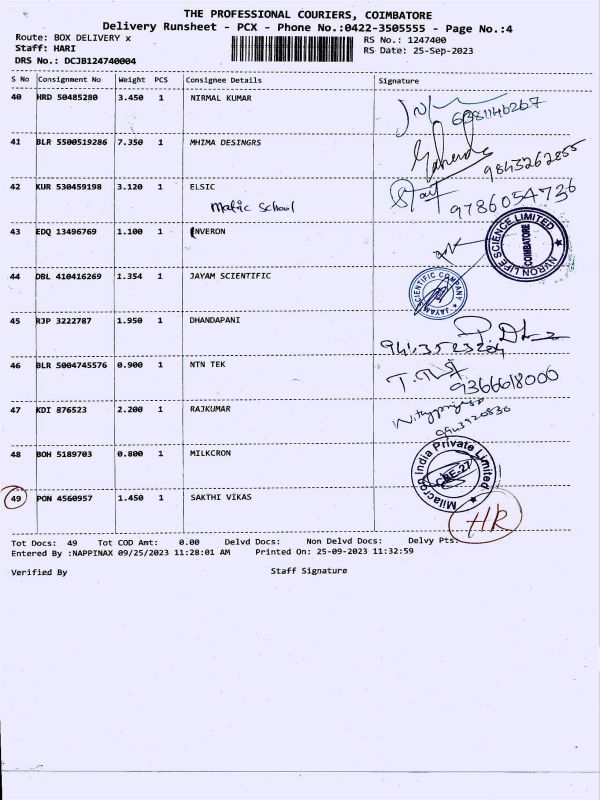 THE PROFESSIONAL COURIERS, COIMBATORE
Delivery Runsheet - PCX - Phone No.:0422-3505555 - Page No.:4
Route: BOX DELIVERY x RS No.: 1247400
Staff: HARI RS Date: 25-Sep-2023
DRS No.: DCJB124740004
S No Consignment No Weight PCS Consignee Details Signature
40 HRD 50485280 3.450 1 NIRMAL KUMAR
6381146267
41 BLR 5500519286 7.350 1 MHIMA DESINGRS
9843262855
42 KUR 530459198 3.120 1 ELSIC
Matic School 9786054736
43 EDQ 13496769 1.100 1 INVERON
NVRON LIFE SCIENCE LIMITED
COIMBATORE
44 DBL 410416269 1.354 1 JAYAM SCIENTIFIC
JAYAM SCIENTIFIC COMPANY
45 RJP 3222787 1.950 1 DHANDAPANI
46 BLR 5004745576 0.900 1 NTN TEK
9366618000
47 KDI 876523 2.200 1 RAJKUMAR
48 BOH 5189703 0.800 1 MILKCRON
Milacron India Private Limited
CBE-27
49 PON 4560957 1.450 1 SAKTHI VIKAS
HR
Tot Docs: 49 Tot COD Amt: 0.00 Delvd Docs: Non Delvd Docs: Delvy Pts:
Entered By :NAPPINAX 09/25/2023 11:28:01 AM Printed On: 25-09-2023 11:32:59
Verified By Staff Signature